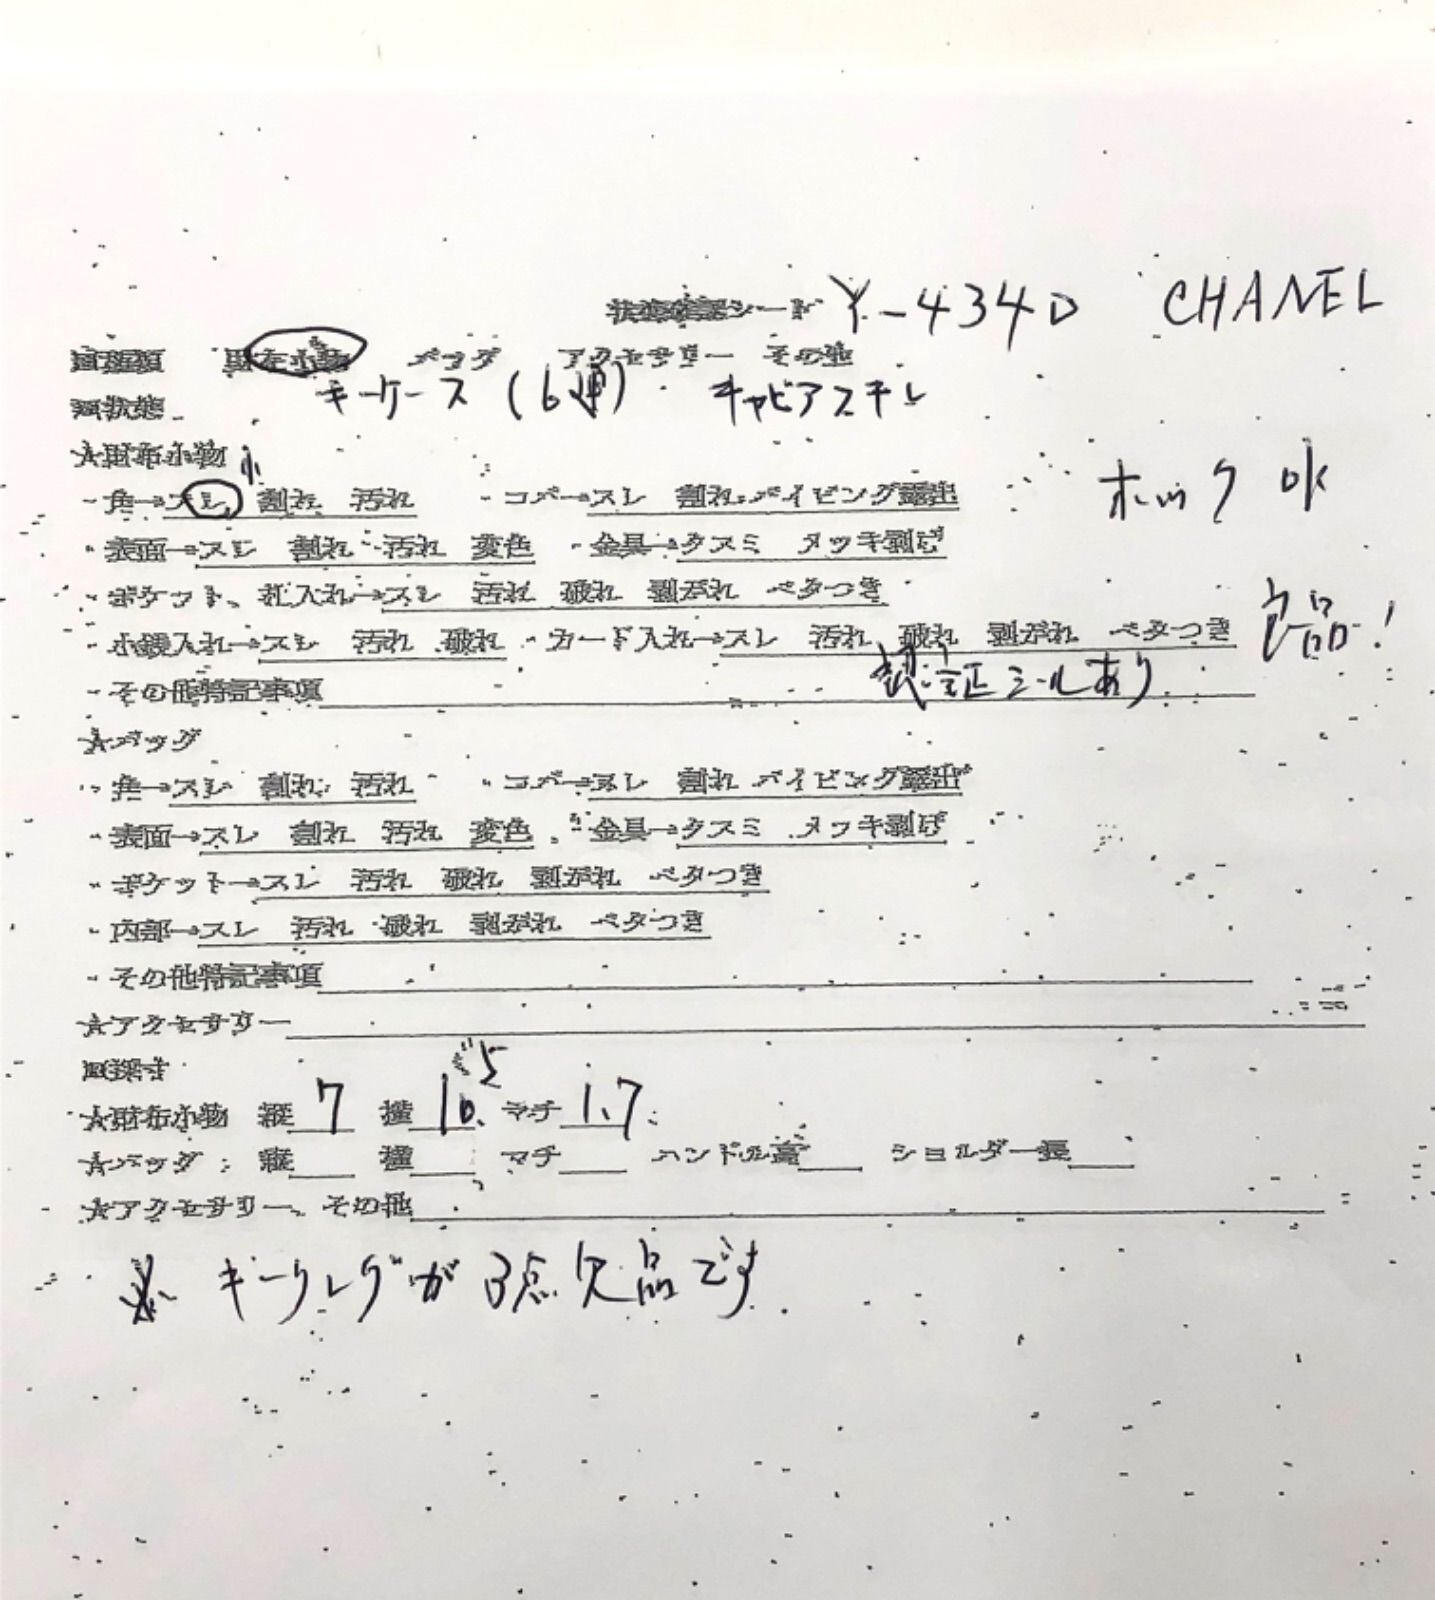 状態確認シート Y-4340 CHANEL
財布小物 バッグ アクセサリー その他
状態 キーケース (6連) キャビアスキン
★財布小物 小
・角→スレ 割れ 汚れ ・コバ→スレ 割れ パイピング露出 ホック OK
・表面→スレ 割れ 汚れ 変色 ・金具→クスミ メッキ剥げ
・ポケット、札入れ→スレ 汚れ 破れ 剥がれ ベタつき
・小銭入れ→スレ 汚れ 破れ ・カード入れ→スレ 汚れ 破れ 剥がれ ベタつき 良品!
・その他特記事項 認証シールあり
★バッグ
・角→スレ 割れ 汚れ ・コバ→スレ 割れ パイピング露出
・表面→スレ 割れ 汚れ 変色 ・金具→クスミ メッキ剥げ
・ポケット→スレ 汚れ 破れ 剥がれ ベタつき
・内部→スレ 汚れ 破れ 剥がれ ベタつき
・その他特記事項
★アクセサリー
採寸
★財布小物 縦 7 横 10.5 マチ 1.7
★バッグ 縦 横 マチ ハンドル高 ショルダー長
★アクセサリー、その他
※ キーリングが3点欠品です